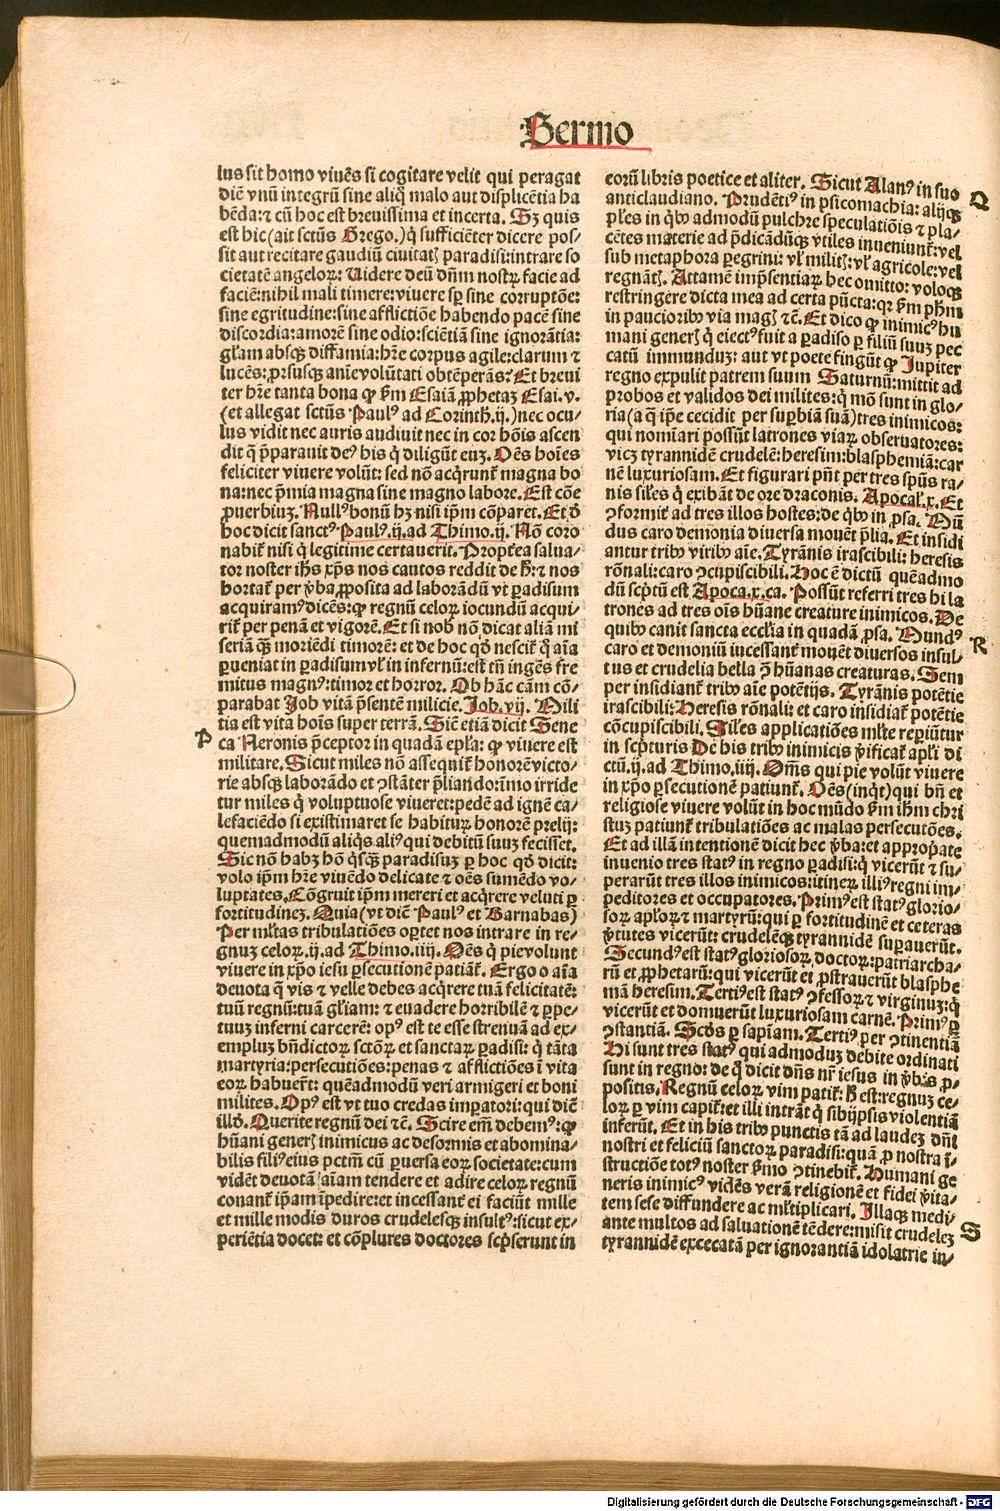 Sermo
lus sit homo viuēs si cogitare velit qui peragat
diē vnū integrū sine aliq̊ malo aut displicētia ha
bēda: ⁊ cū hoc est breuissima et incerta. Sꝫ quis
est hic (ait sctūs Grego.) q̇ sufficiēter dicere pos/
sit aut recitare gaudiū ciuitatꝭ paradisi: intrare so
cietatē angeloꝝ: Uidere deū dn̄m nostrꝫ facie ad
faciē: nihil mali timere: viuere sꝑ sine corruptōe:
sine egritudine: sine afflictiōe habendo pacē sine
discordia: amorē sine odio: sciētiā sine ignorātia:
gl̄am absqꝫ diffamia: hr̄e corpus agile: clarum ⁊
lucēs: ꝓrsusqꝫ anīe volūtati obtēperās? Et breui
ter hr̄e tanta bona ꝙ ẜm Esaiā ꝓphetaꝫ Esai. v.
(et allegat sctūs Paulꝰ ad Corinth. ij.) nec ocu/
lus vidit nec auris audiuit nec in cor hōis ascen
dit q̄ p̄parauit deꝰ his q̇ diligūt euꝫ. Oēs hoīes
feliciter viuere volūt: sed nō acq̇runt̄ magna bo
na: nec p̄mia magna sine magno labore. Est cōe
ꝓuerbiuꝫ. Nullꝰ bonū hꝫ nisi ip̄m cōparet. Et ꝺ̊
hoc dicit sanctꝰ Paulꝰ. ij. ad Thimo. ij. Nō coro
nabit̄ nisi q̇ legitime certauerit. Propt̄ea salua/
tor noster ih̄s xp̄s nos cautos reddit de h̄: ⁊ nos
hortat̄ per v̄ba ꝓposita ad laborādū vt ꝑadisum
acquiramꝰ dicēs: ꝙ regnū celoꝝ iocundū acqui/
rit̄ per penā et vigorē. Et si nob̄ nō dicat aliā mi
seriā qꝫ moriēdi timorē: et de hoc qd̊ nescit̄ q̄ aīa
ꝑueniat in ꝑadisum vl̄ in infernū: est tn̄ ingēs fre
mitus magnꝰ: timor et horror. Ob hāc cām cō/
parabat Job vitā p̄sentē milicie. Job. vij. Mili
tia est vita hoīs super terrā. Sic̄ etiā dicit Sene
P
ca Neronis p̄ceptor in quadā ep̄la: ꝙ viuere est
militare. Sicut miles nō assequit̄ honorē victo/
rie absqꝫ laborādo et ↄ̨stāter p̄liando: īmo irride
tur miles q̇ voluptuose viueret: pedē ad ignē ca/
lefaciēdo si existimaret se habiturꝫ honorē prelij:
quemadmodū aliq̇s aliꝰ qui debitū suuꝫ fecisset.
Sic nō habꝫ hō q̇sqꝫ paradisuꝫ ꝑ hoc qd̊ dicit:
volo ip̄m hr̄e viuēdo delicate ⁊ oēs sumēdo vo/
luptates. Cōgruit ip̄m mereri et acq̇rere veluti ꝑ
fortitudineꝫ. Quia (vt dic̄ Paulꝰ et Barnabas)
Per ml̄tas tribulatiōes oꝑtet nos intrare in re/
gnuꝫ celoꝝ. ij. ad Thimo. iiij. Oēs q̇ pie volunt
viuere in xp̄o iesu ꝑsecutionē patiāt̄. Ergo o aīa
deuota q̄ vis ⁊ velle debes acq̇rere tuā felicitatē:
tuū regnū: tuā gl̄iam: ⁊ euadere horribilē ⁊ ꝑpe/
tuuꝫ inferni carcerē: opꝰ est te esse strenuā ad ex/
empluꝫ bn̄dictoꝝ sctōꝝ et sanctaꝝ ꝑadisi: q̇ tāta
martyria: persecutiōes: penas ⁊ afflictiōes ī vita
eoꝝ habuer̄t: quēadmodū veri armigeri et boni
milites. Opꝰ est vt tuo credas imꝑatori: qui dic̄
illd̊. Querite regnū dei ⁊c̄. Scire em̄ debemꝰ: ꝙ
hūani generꝭ inimicus ac deformis et abomina/
bilis filiꝰ eius pctm̄ cū ꝑuersa eoꝝ societate: cum
vidēt deuotā aīam tendere et adire celoꝝ regnū
conant̄ ip̄am īpedire: et incessant̄ ei faciūt mille
et mille modis duros crudelesqꝫ insultꝰ: sicut ex/
periētia docet: et cōplures doctores scp̄serunt in
eorū libris poetice et aliter. Sicut Alanꝰ in suo
Q
anticlaudiano. Prudētiꝰ in psicomachia: alijqꝫ
pl̄es in q̇bꝰ admodū pulchre speculatiōis ⁊ pla/
cētes materie ad p̄dicādūqꝫ vtiles inueniunt̄: vel
sub metaphora ꝑegrini: vl̄ militꝭ: vl̄ agricole: vel
regnātꝭ. Attamē imp̄sentiaꝝ hec omitto: voloqꝫ
restringere dicta mea ad certa pūcta: qꝛ ẜm ph̄m
in pauciorib ꝰ via magꝭ ⁊c̄. Et dico ꝙ inimicꝰ hu
mani generꝭ q̇ eiectꝰ fuit a ꝑadiso ꝑ filiū suuꝫ pec
catū immunduꝫ: aut vt poete fingūt ꝙ Jupiter
regno expulit patrem suum Saturnū: mittit ad
probos et validos dei milites: q̇ mō sunt in glo/
ria (a q̄ ip̄e cecidit per suꝑbiā suā) tres inimicos:
qui nomīari possūt latrones viaꝝ obseruatores:
vicꝫ tyrannidē crudelē: heresim: blasphemiā: car
nē luxuriosam. Et figurari pn̄t per tres spūs ra/
nis sil̄es q̇ exibāt de ore draconis. Apocal̄. x. Et
ↄ̨formit̄ ad tres illos hostes: de q̇bꝰ in ꝓsa. Mū
dus caro demonia diuersa mouēt p̄lia. Et insidi
antur tribꝰ viribꝰ aīe. Tyrānis irascibili: heresis
rōnali: caro ↄ̨cupiscibili. Hoc ē dictū quēadmo
dū scp̄tū est Apoca. x. ca. Possūt referri tres hi la
trones ad tres oīs hūane creature inimicos. De
quibꝰ canit sancta eccl̄ia in quadā ꝓsa. Mundꝰ
R
caro et demoniū incessant̄ mouēt diuersos insul/
tus et crudelia bella ꝯ̄ hūanas creaturas. Sem
per insidiant̄ tribꝰ aīe potētijs. Tyrānis potētie
irascibili: Heresis rōnali: et caro insidiat̄ potētie
cōcupiscibili. Siles applicatiōes ml̄te reꝑiūtur
in scp̄turis De his tribꝰ inimicis v̄ificat̄ apl̄i di
ctū. ij. ad Thimo. iiij. Om̄s qui pie volūt viuere
in xp̄o ꝑsecutionē patiunt̄. Oēs (inq̇t) qui bn̄ et
religiose viuere volūt in hoc mūdo ẜm ih̄m chri
stuꝫ patiunt̄ tribulatiōes ac malas persecutiōes.
Et ad illā intentionē dicit hec v̄ba: et appropate
inuenio tres statꝰ in regno ꝑadisi: q̇ vicerūt ⁊ su/
perarūt tres illos inimicos: itineꝝ illiꝰ regni im/
peditores et occupatores. Primꝰ est statꝰ glorio/
soꝝ apl̄oꝝ ⁊ martyrū: qui ꝑ fortitudinē et ceteras
v̄tutes vicerūt: crudelēqꝫ tyrannidē suꝑauerūt.
Secundꝰ est statꝰ gloriosoꝝ doctoꝝ: patriarcha/
rū et ꝓphetarū: qui vicerūt et ꝓstrauerūt blasphe
mā heresim. Tertiꝰ est statꝰ ↄ̨fessoꝝ ⁊ virginuꝫ: q̇
vicerūt et domuerūt luxuriosam carnē. Primꝰ ꝑ
ↄ̨stantiā. Scd̊s ꝑ sapiam. Tertiꝰ per ↄ̨tinentiā
Hi sunt tres statꝰ qui admoduꝫ debite ordinati
sunt in regno: de q̊ dicit dn̄s nr̄ iesus in v̄bis ꝓ/
positis. Regnū celoꝝ vim patit̄: h̄ est: regnuꝫ ce/
loꝝ ꝑ vim capit̄: et illi intrāt q̇ sibijpsis violentiā
inferūt. Et in his tribꝰ punctis tā ad laudeꝫ dn̄i
nostri et feliciū sanctoꝝ paradisi: quā ꝓ nostra ī/
structiōe totꝰ noster ẜmo ↄ̨tinebit̄. Humani ge
neris inimicꝰ vidēs verā religionē et fidei v̄ita/
tem sese diffundere ac ml̄tiplicari. Illaqꝫ medi/
ante multos ad saluationē tēdere: misit crudeleꝫ
S
tyrannidē excecatā per ignorantiā idolatrie in/
Digitalisierung gefördert durch die Deutsche Forschungsgemeinschaft - DFG